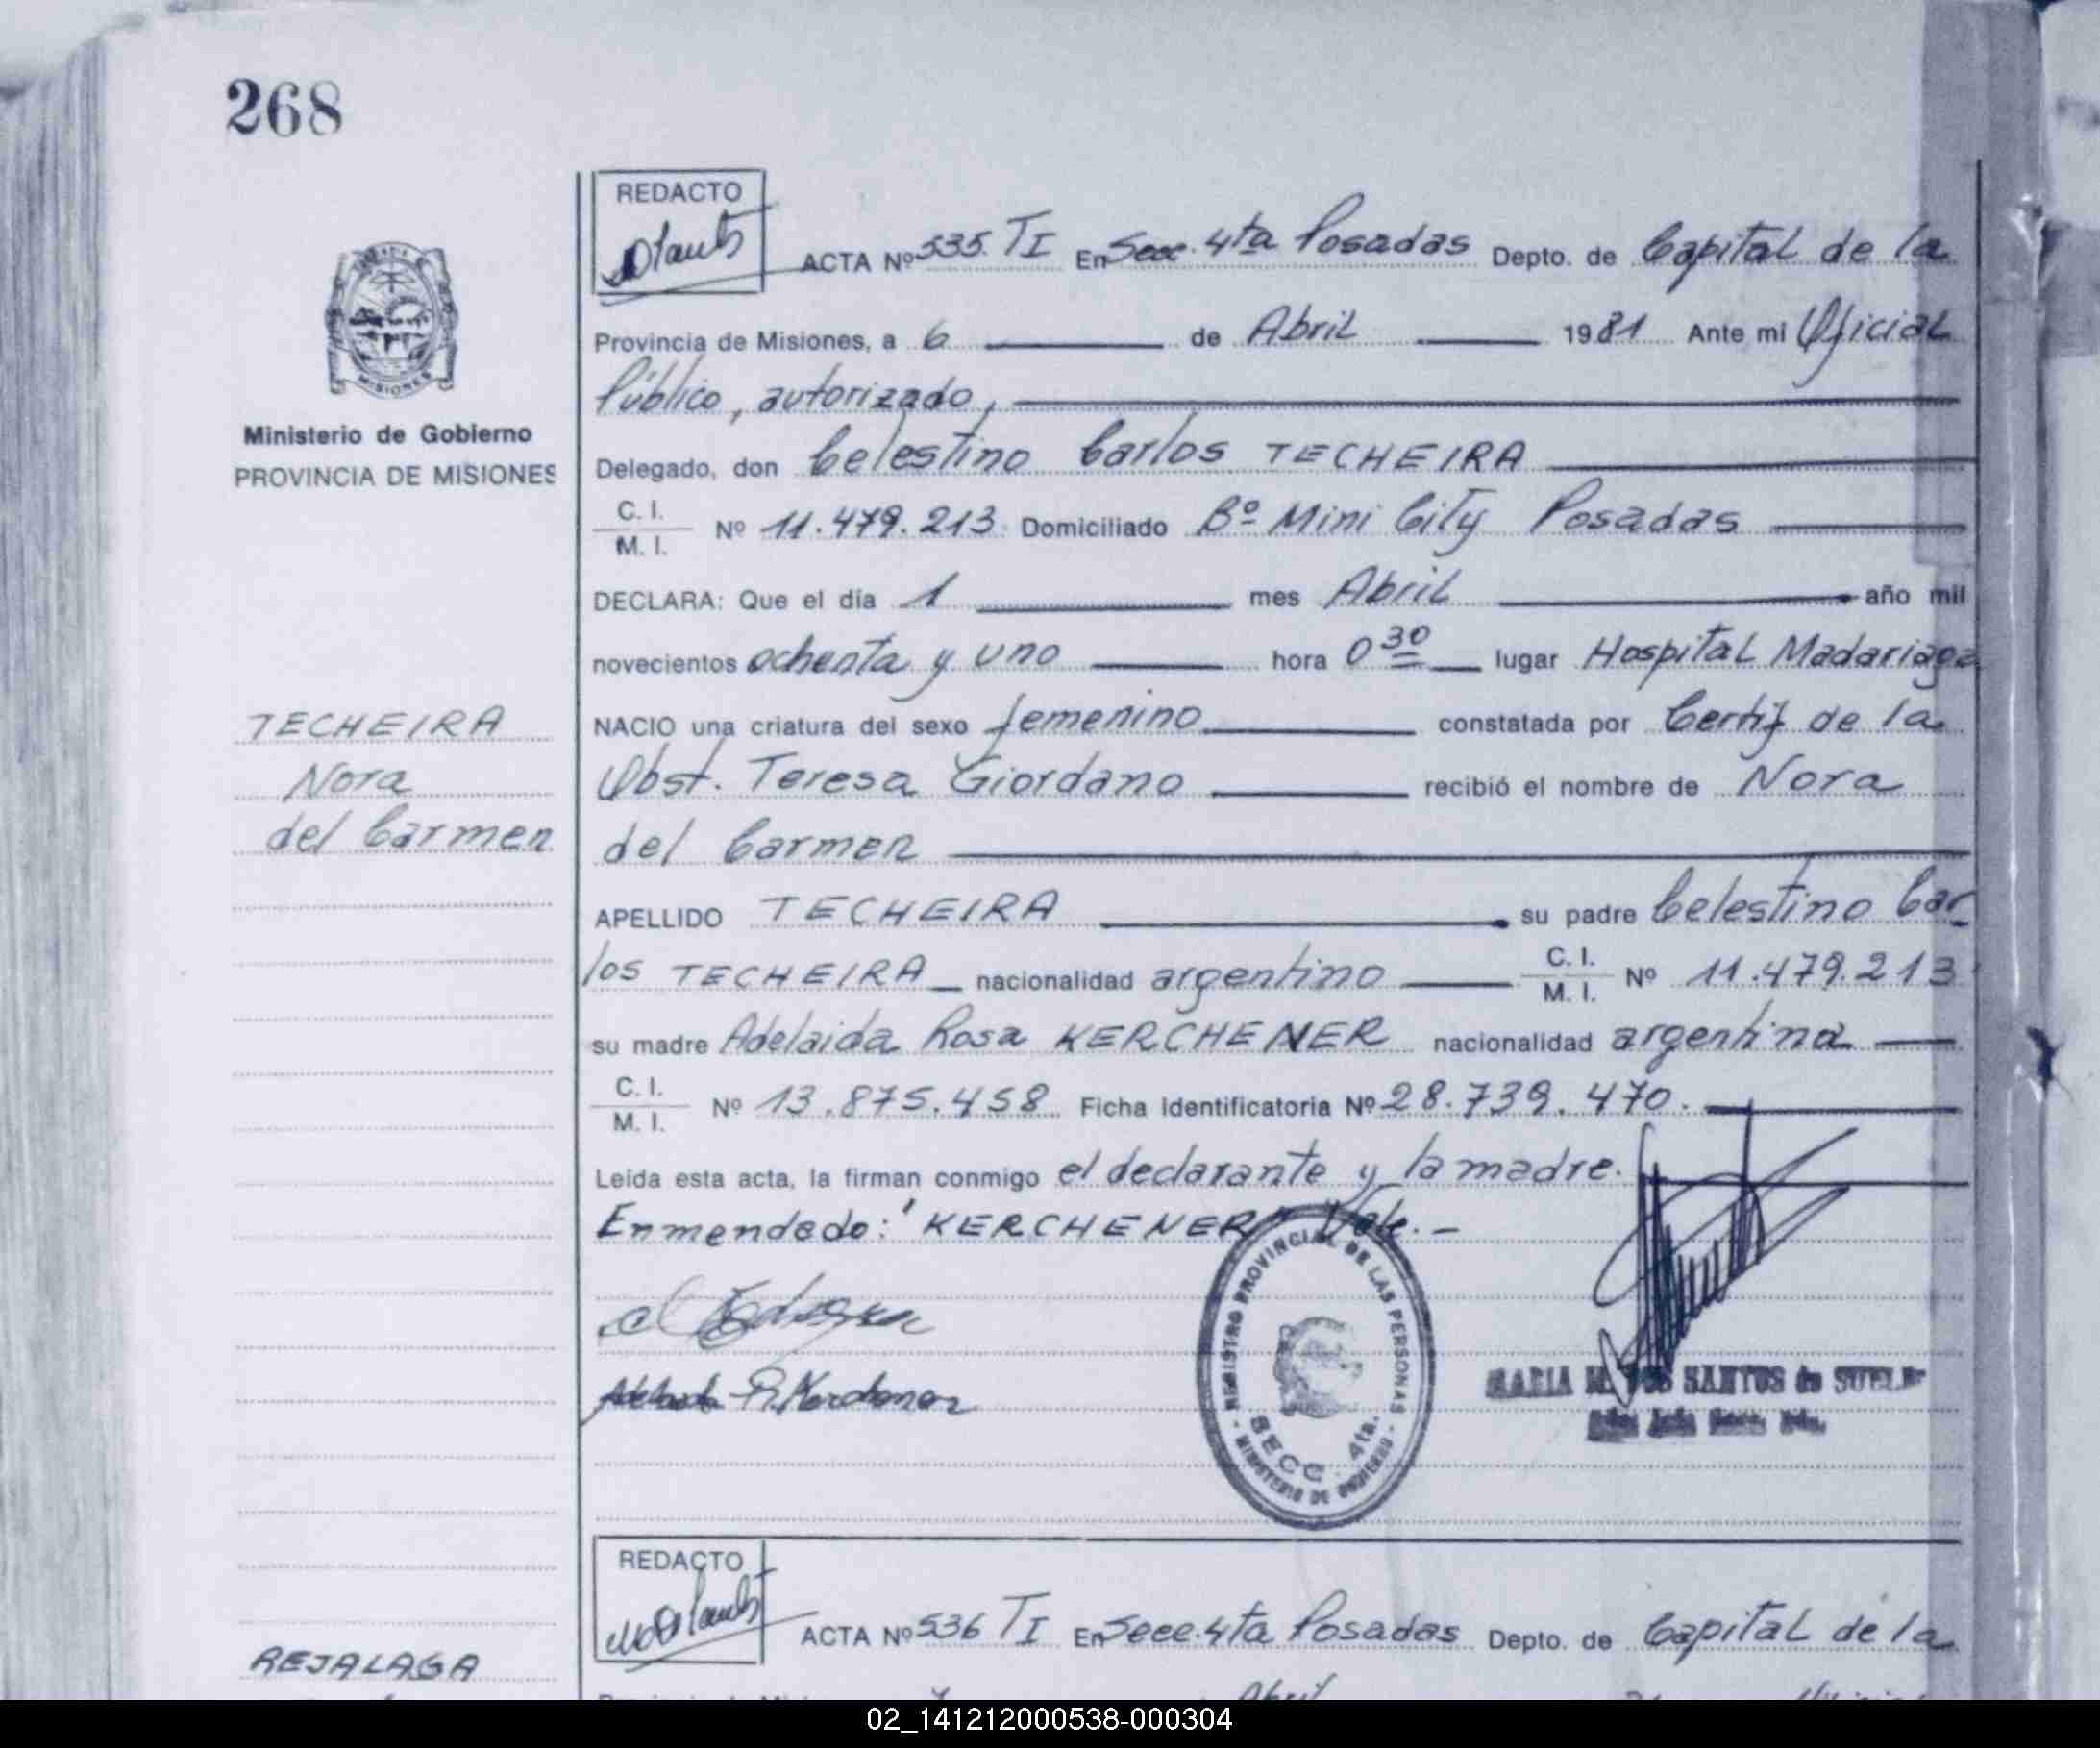 268
REDACTO
ACTA Nº 535. TI En Secc. 4ta Posadas Depto. de Capital de la
Provincia de Misiones, a 6 de Abril 1981 Ante mi Oficial
Público, autorizado,
Delegado, don Celestino Carlos TECHEIRA
C. I.
M. I. Nº 11.479.213 Domiciliado Bº Mini City Posadas
DECLARA: Que el día 1 mes Abril año mil
novecientos ochenta y uno hora 0 30 lugar Hospital Madariaga
NACIO una criatura del sexo femenino constatada por Certif de la
Obst. Teresa Giordano recibió el nombre de Nora
del Carmen
APELLIDO TECHEIRA su padre Celestino Car
los TECHEIRA nacionalidad argentino C. I. M. I. Nº 11.479.213
su madre Adelaida Rosa KERCHENER nacionalidad argentina
C. I.
M. I. Nº 13.875.458 Ficha Identificatoria Nº 28.739.470.
Leída esta acta, la firman conmigo el declarante y la madre.
Enmendado: "KERCHENER" Vale. -
REGISTRO PROVINCIAL DE LAS PERSONAS
SECC. 4ta.
- MINISTERIO DE GOBIERNO -
MARIA SANTOS de
MISIONES
Ministerio de Gobierno
PROVINCIA DE MISIONES
TECHEIRA
Nora
del Carmen
REDACTO
ACTA Nº 536 TI En Secc. 4ta Posadas Depto. de Capital de la
REJALAGA
Abril
02_141212000538-000304